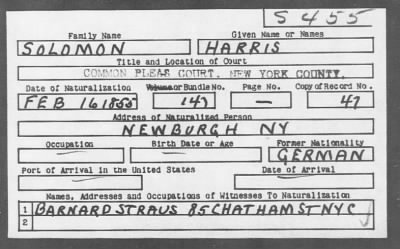 S 455
Family Name Given Name or Names
SOLOMON HARRIS
Title and Location of Court
COMMON PLEAS COURT, NEW YORK COUNTY.
Date of Naturalization Volume or Bundle No. Page No. Copy of Record No.
FEB 16 1855 147 — 47
Address of Naturalized Person
NEWBURGH NY
Occupation Birth Date or Age Former Nationality
— — GERMAN
Port of Arrival in the United States Date of Arrival
— —
Names, Addresses and Occupations of Witnesses To Naturalization
1 BARNARD STRAUS 85 CHATHAM ST NYC
2